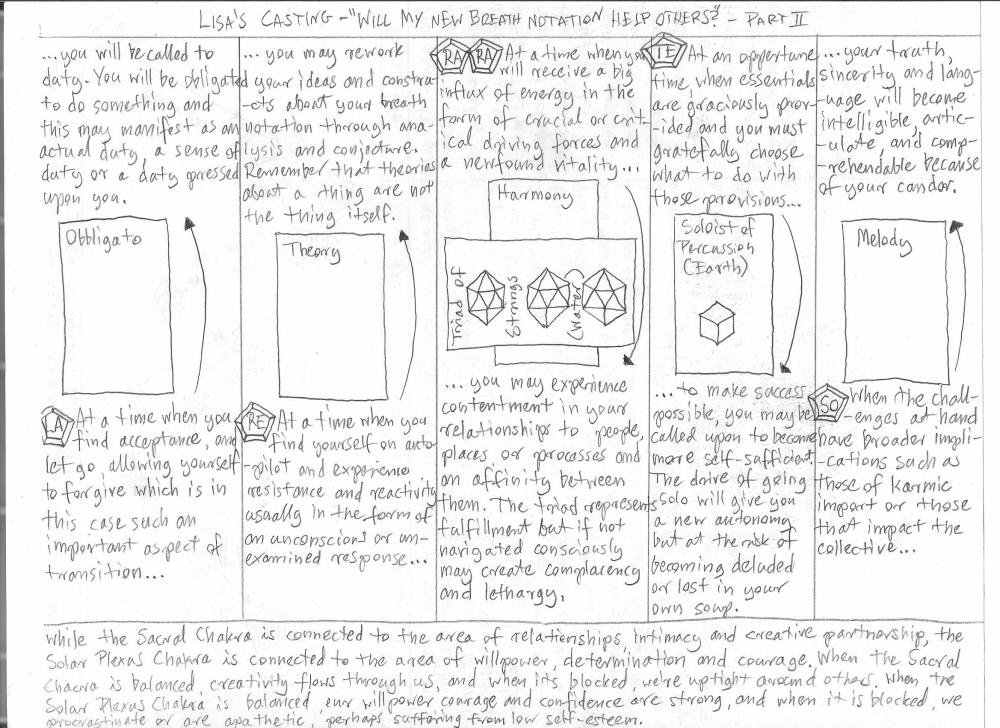 LISA'S CASTING - "WILL MY NEW BREATH NOTATION HELP OTHERS?" - PART II
...you will be called to
duty. You will be obligated
to do something and
this may manifest as an
actual duty, a sense of
duty or a duty pressed
upon you.
Obbligato
LA
At a time when you
find acceptance, and
let go, allowing yourself
to forgive which is in
this case such an
important aspect of
transition...
...you may rework
your ideas and constru-
-cts about your breath
notation through ana-
lysis and conjecture.
Remember that theories
about a thing are not
the thing itself.
Theory
RE
At a time when you
find yourself on auto-
-pilot and experience
resistance and reactivity
usually in the form of
an unconscious or un-
examined response...
RA RA
At a time when you
will receive a big
influx of energy in the
form of crucial or crit-
ical driving forces and
a newfound vitality...
Harmony
Triad of
Strings
(Water)
...you may experience
contentment in your
relationships to people,
places or processes and
an affinity between
them. The triad represents
fulfillment but if not
navigated consciously
may create complacency
and lethargy.
TE
At an oppertune
time, when essentials
are graciously prov-
-ided and you must
gratefully choose
what to do with
those provisions...
Soloist of
Percussion
(Earth)
...to make success
possible, you may be
called upon to become
more self-sufficient.
The drive of going
solo will give you
a new autonomy
but at the risk of
becoming deluded
or lost in your
own soup.
...your truth,
sincerity and lang-
-uage will become
intelligible, artic-
-ulate, and comp-
-rehendable because
of your candor.
Melody
SO
When the chall-
-enges at hand
have broader impli-
-cations such as
those of karmic
import or those
that impact the
collective...
While the Sacral Chakra is connected to the area of relationships, intimacy and creative partnership, the
Solar Plexus Chakra is connected to the area of willpower, determination and courage. When the Sacral
Chacra is balanced, creativity flows through us, and when its blocked, we're uptight around others. When the
Solar Plexus Chakra is balanced, our willpower courage and confidence are strong, and when it is blocked, we
procrastinate or are apathetic, perhaps suffering from low self-esteem.